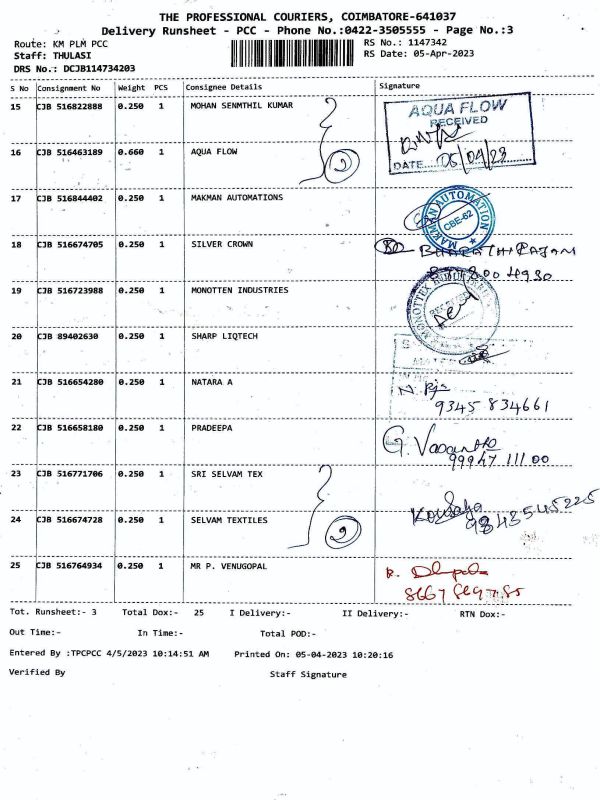 THE PROFESSIONAL COURIERS, COIMBATORE-641037
Delivery Runsheet - PCC - Phone No.:0422-3505555 - Page No.:3
Route: KM PLM PCC
RS No.: 1147342
Staff: THULASI
RS Date: 05-Apr-2023
DRS No.: DCJB114734203
S No Consignment No Weight PCS Consignee Details Signature
15 CJB 516822888 0.250 1 MOHAN SENMTHIL KUMAR
AQUA FLOW
RECEIVED
DATE 05/04/23
16 CJB 516463189 0.660 1 AQUA FLOW
2
17 CJB 516844402 0.250 1 MAKMAN AUTOMATIONS
MAKMAN AUTOMATION
CBE-62
18 CJB 516674705 0.250 1 SILVER CROWN
19 CJB 516723988 0.250 1 MONOTTEN INDUSTRIES
20 CJB 89402630 0.250 1 SHARP LIQTECH
21 CJB 516654280 0.250 1 NATARA A
9345 834661
22 CJB 516658180 0.250 1 PRADEEPA
23 CJB 516771706 0.250 1 SRI SELVAM TEX
9843545225
24 CJB 516674728 0.250 1 SELVAM TEXTILES
2
25 CJB 516764934 0.250 1 MR P. VENUGOPAL
Tot. Runsheet:- 3 Total Dox:- 25 I Delivery:- II Delivery:- RTN Dox:-
Out Time:- In Time:- Total POD:-
Entered By :TPCPCC 4/5/2023 10:14:51 AM Printed On: 05-04-2023 10:20:16
Verified By Staff Signature